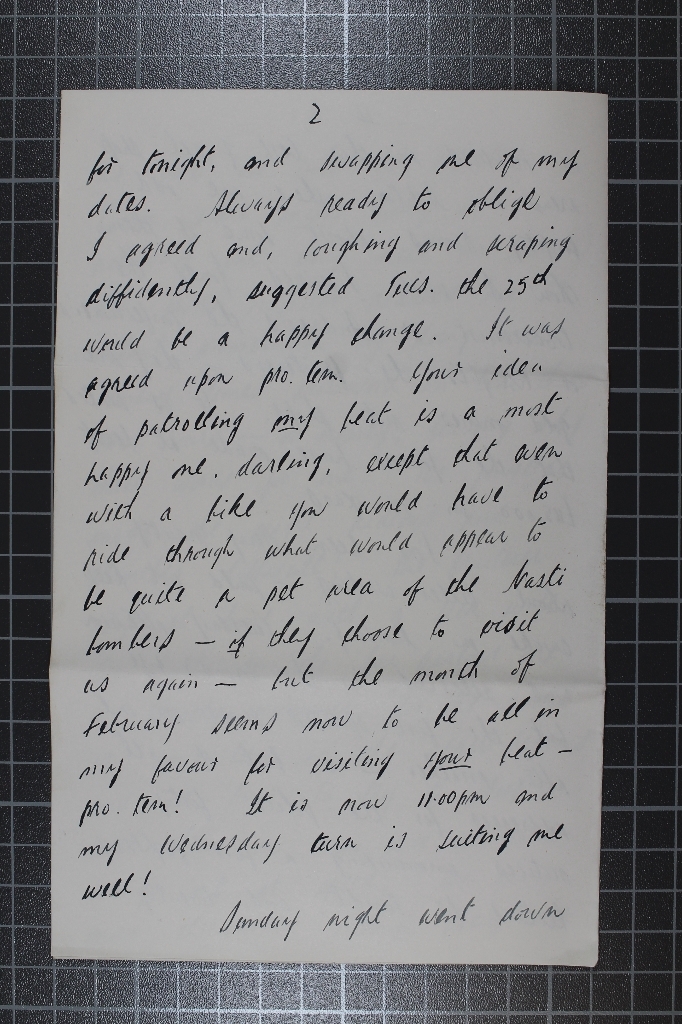 2
for tonight, and swapping one of my
dates. Always ready to oblige
I agreed and, coughing and scraping
diffidently, suggested Tues. the 25th
would be a happy change. It was
agreed upon pro. tem. Your idea
of patrolling my beat is a most
happy one, darling, except that even
with a bike you would have to
ride through what would appear to
be quite a pet area of the Nasti
bombers – if they choose to visit
us again – but the month of
February seems now to be all in
my favour for visiting your beat –
pro. tem! It is now 11.00pm and
my Wednesday turn is suiting me
well!
Sunday night went down